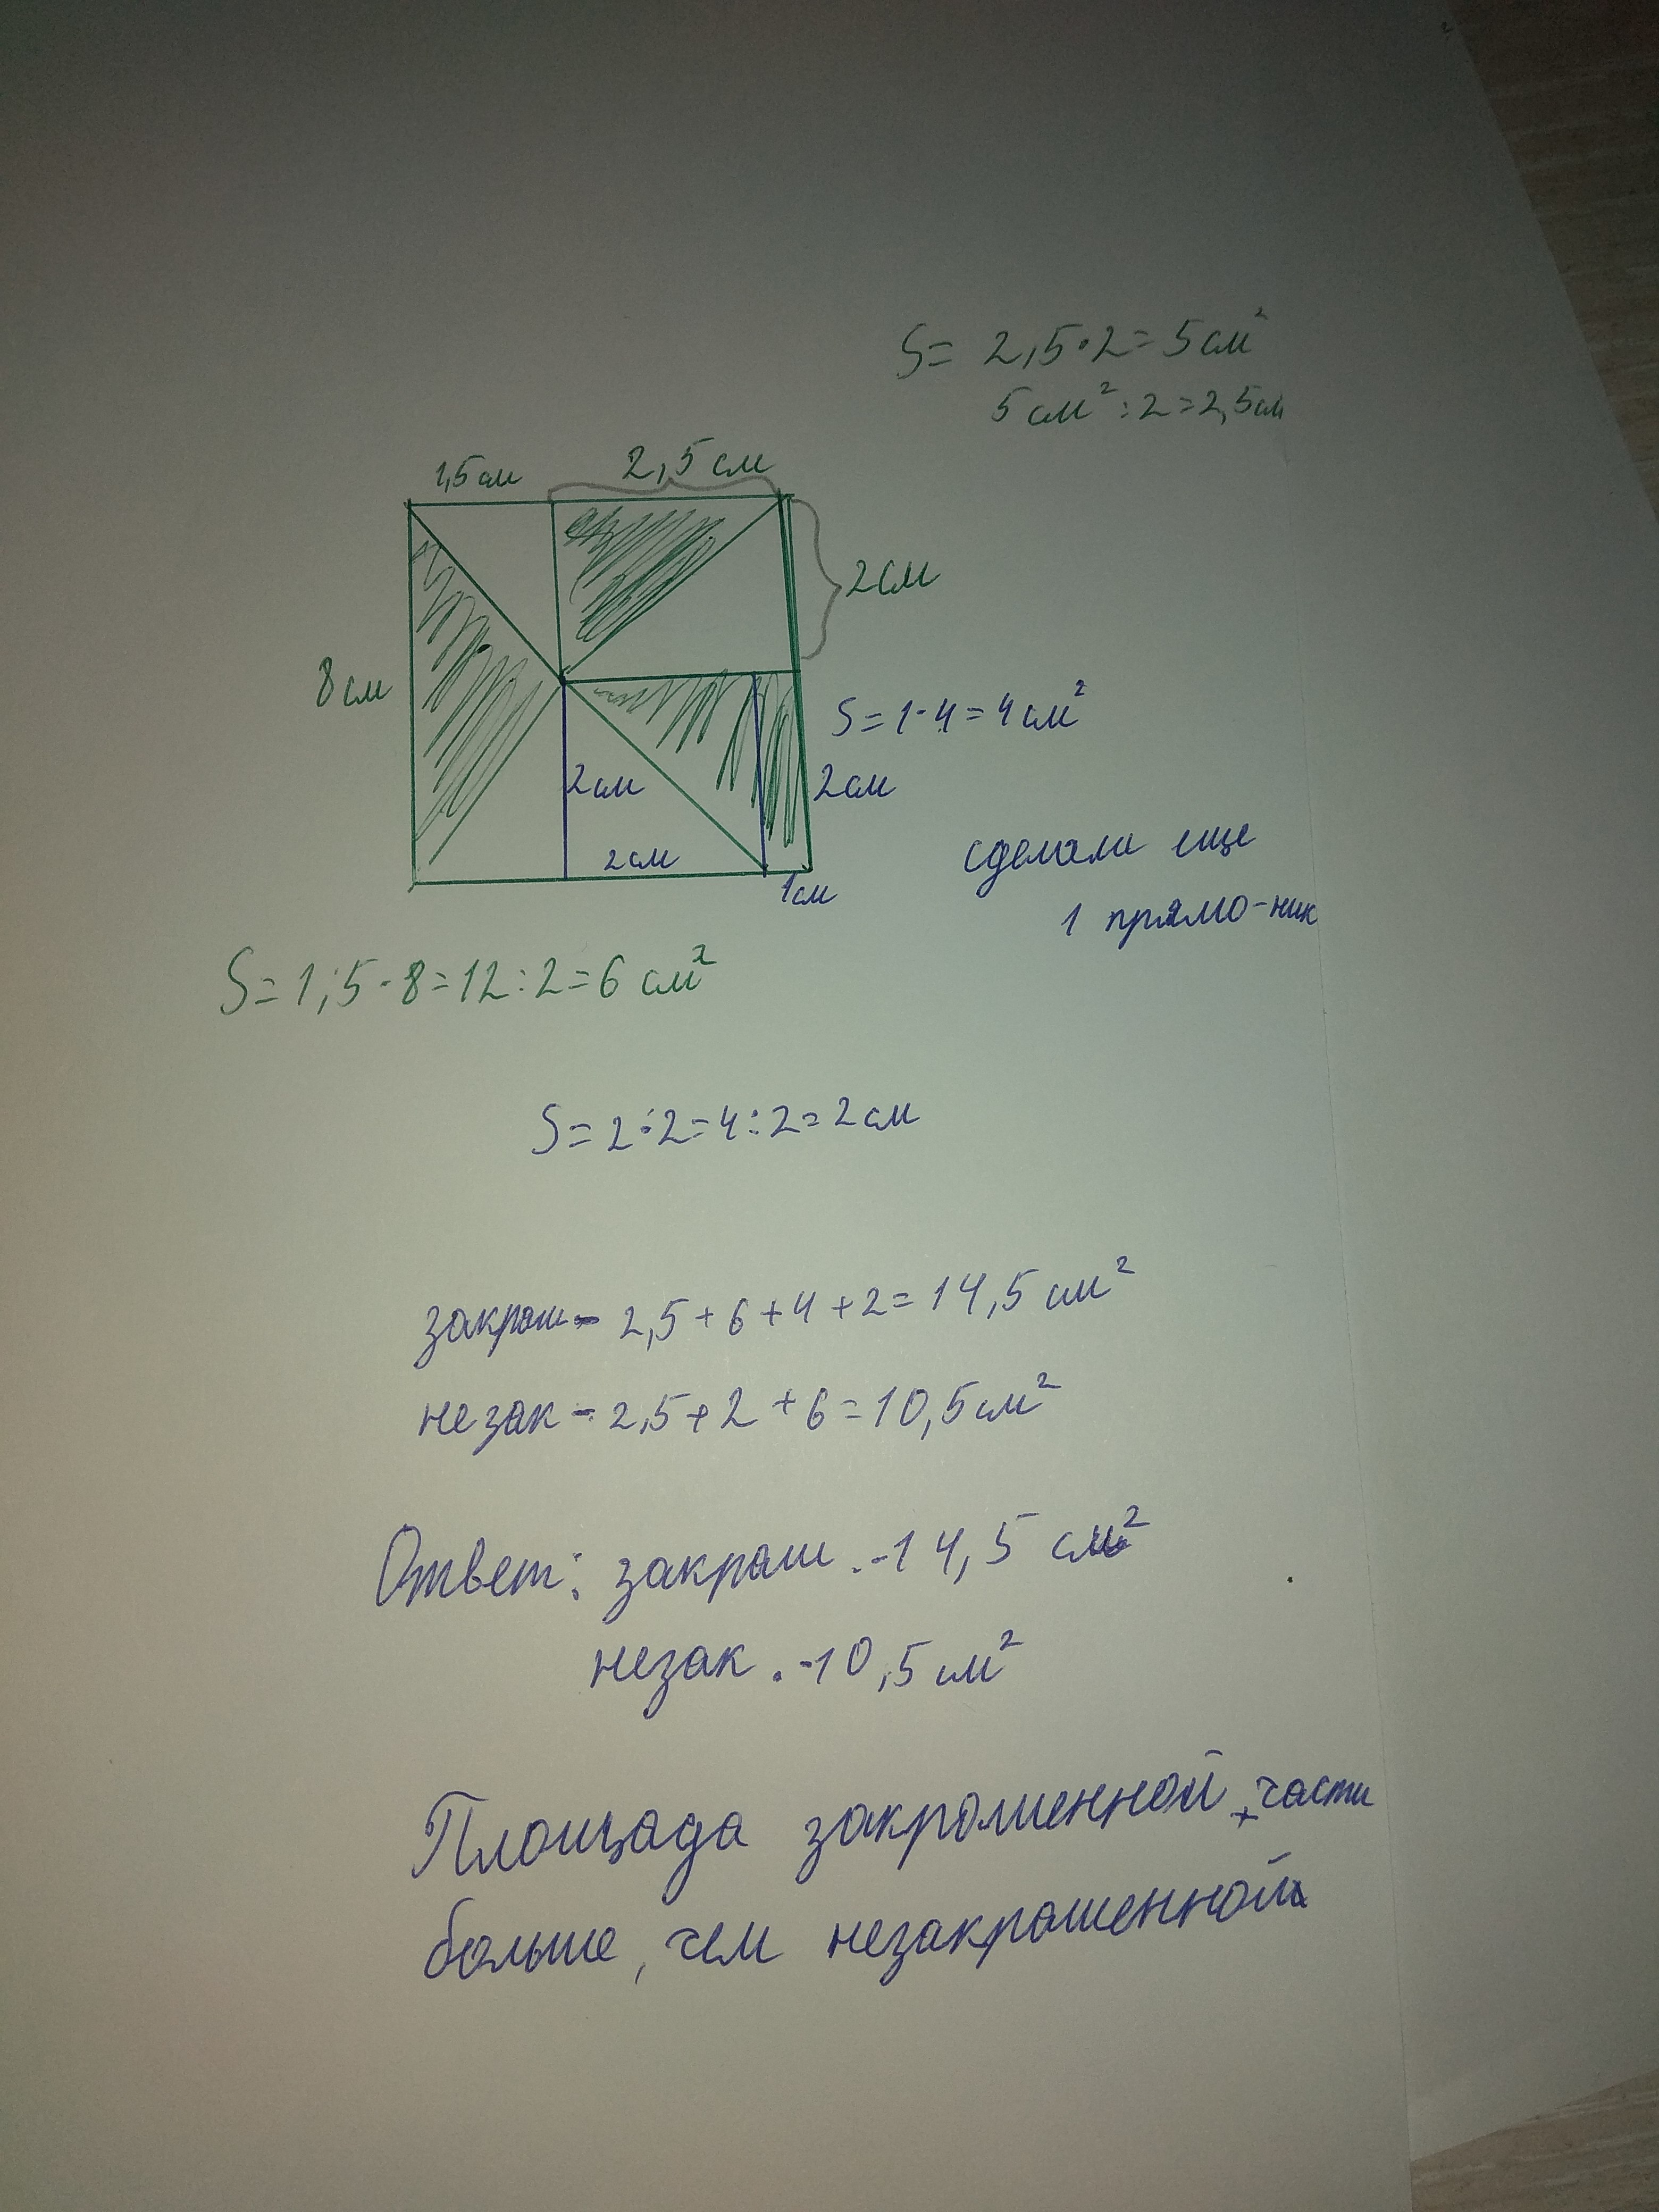 S= 2,5·2=5см²
5см²:2=2,5см
1,5см
2,5см
2см
8см
S=1·4=4см²
2см
2см
2см
1см
сделали еще
1 прямо-ник
S=1,5·8=12:2=6см²
S=2·2=4:2=2см
закраш- 2,5+6+4+2=14,5см²
незак-2,5+2+6=10,5см²
Ответ: закраш.-14,5 см²
незак.-10,5см²
Площада закрашенной части
больше, чем незакрашенной